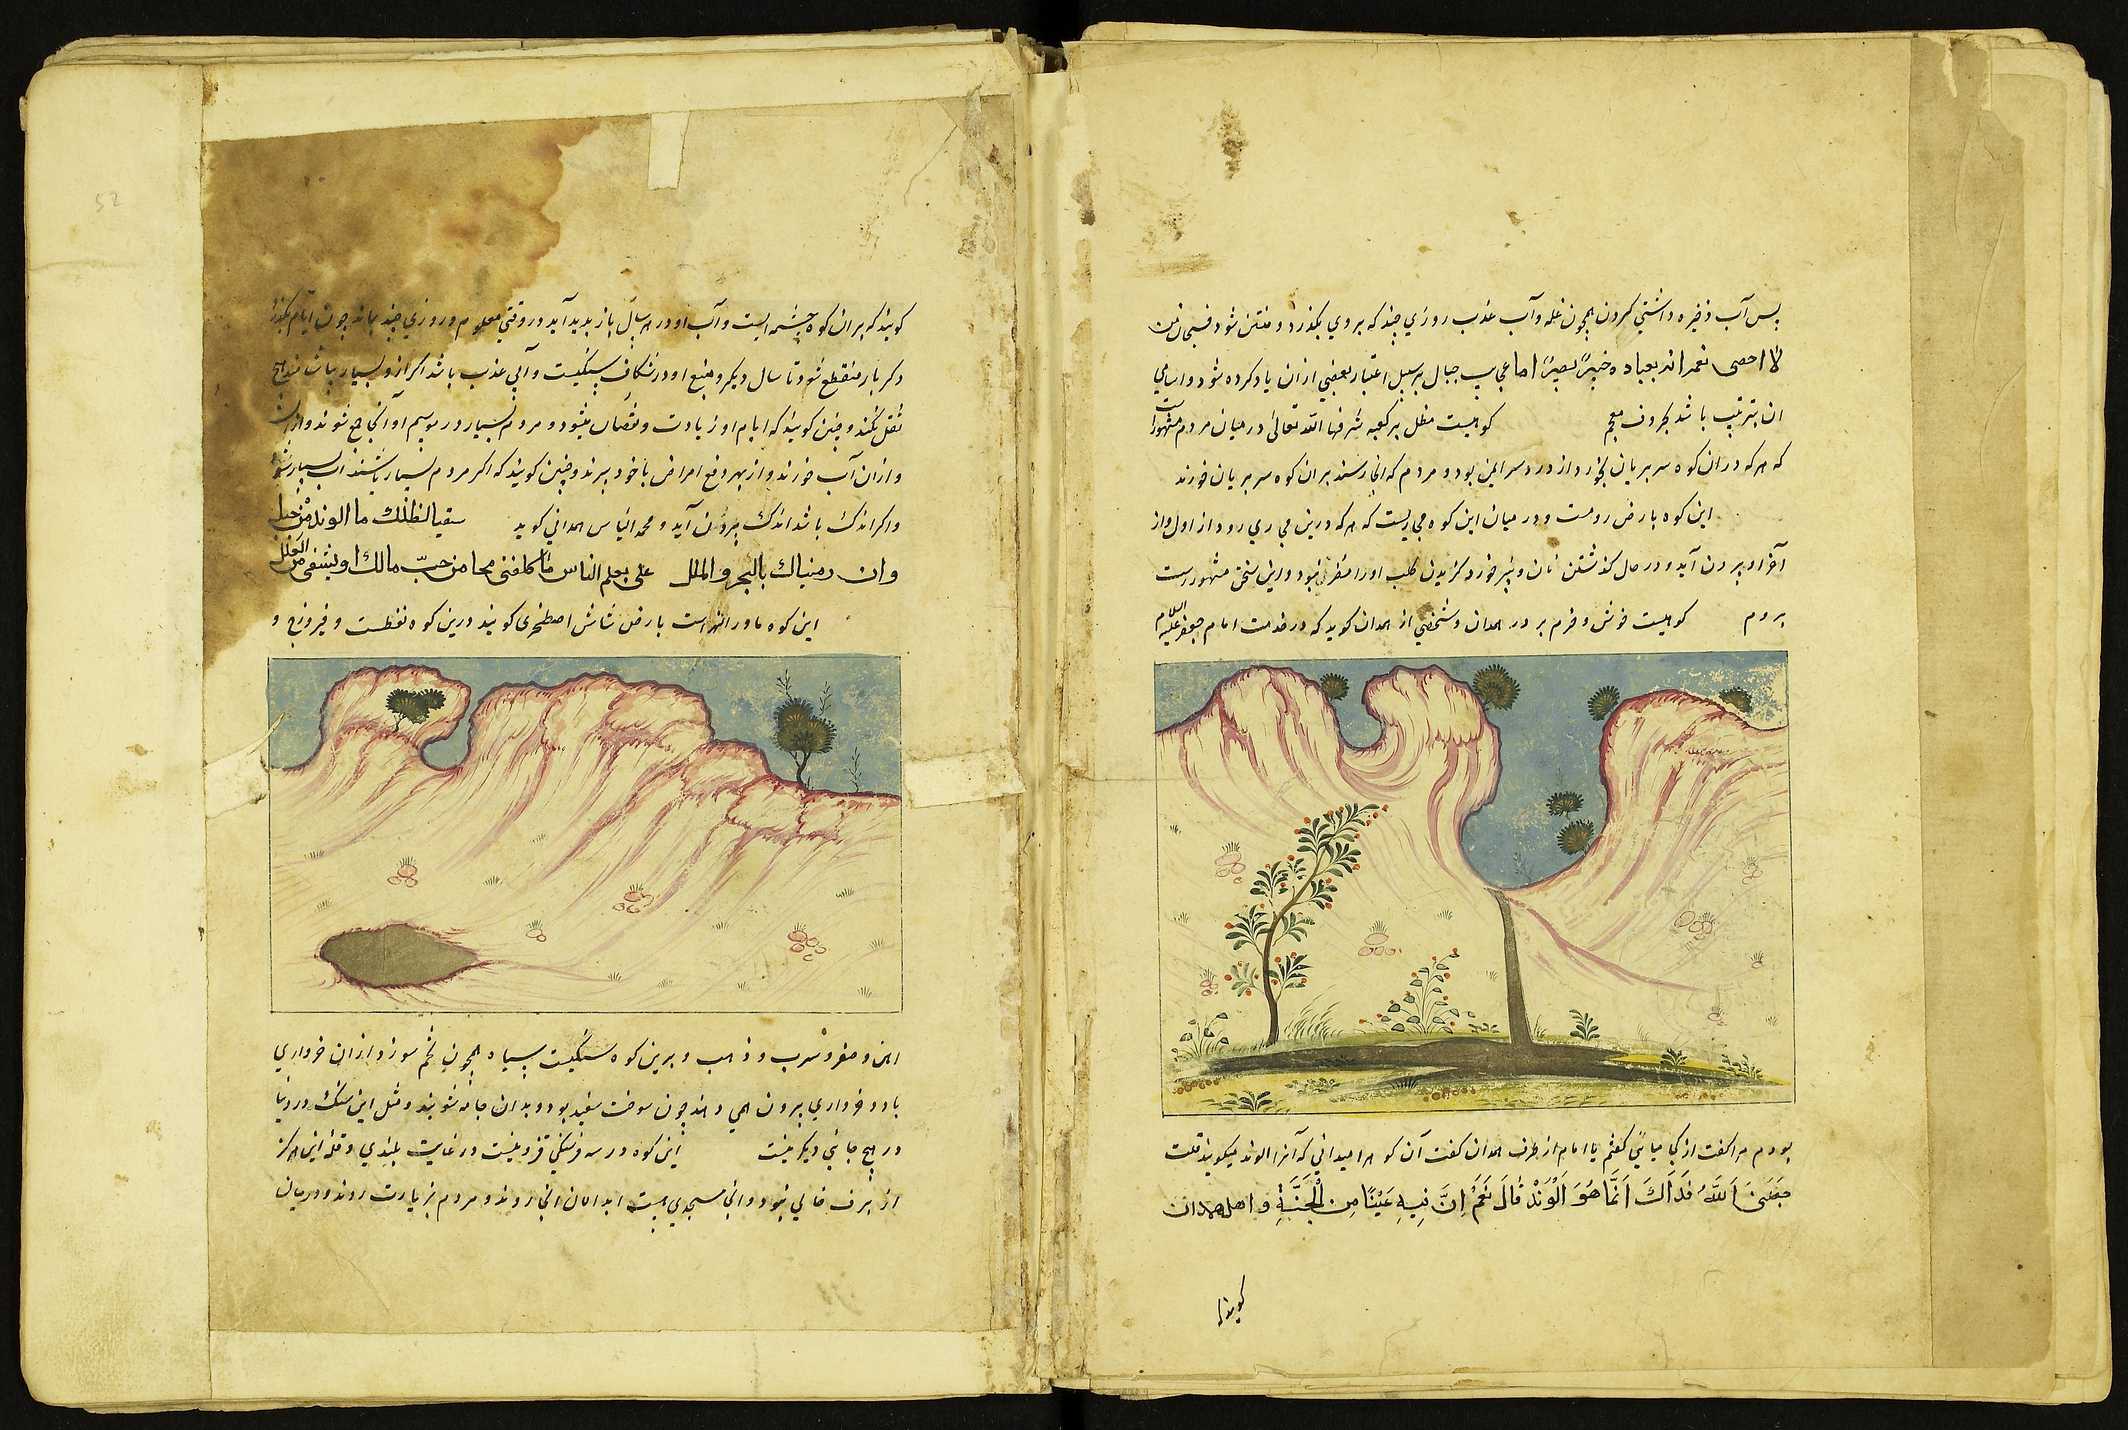 پس آب ذخیره داشتی کردن همچون غله و آب عذب روزی چند که بروی بگذرد و منتن شود فسبحان من
لا احصی نعمه انه بعباده خبیرًا بصیرًا اما عجایب جبال بر سبیل اعتبار بعضی ازان یاد کرده شود و اسامی
ان بترتیب باشد بحروف معجم کوهیست مطل بر کعبه شرفها الله تعالی در میان مردم مشهورست
که هر که دران کوه سر بریان بخورد از درد سر ایمن بود و مردم که انجا رسند بران کوه سر بریان خورند
این کوه بارض رومست و در میان این کوه مجریست که هر که درین مجری رود از اول و از
آخر او بیرون آید و در حال کذشتن نان و پنیر خورد کزیدن کلب او را مضر نبود و این سخن مشهورست
بروم کوهیست خوش و خرم بر در همدان و شخصی از همدان کوید که در خدمت امام جعفر علیه السلام
بودم مرا کفت از کجا میایی کفتم یا امام از طرف همدان کفت آن کوه را میدانی که آنرا الوند میکویند قلت
جَعَلَنِیَ اللَّهُ فَدَاكَ اَنَّمَا هُوَ اَلْوَنْد قَالَ نَعَمْ اِنَّ فِیهِ عَیْنًا مِن الْجَنَّةِ و اهل همدان
کویند
52
کویند که بران کوه چشمه ایست و آب او در هر سال باز بدید آید در وقتی معلوم و روزی چند بماند چون ایام بکذرد
دکر بار منقطع شود تا سال دیکر و منبع او در شکاف سنکیست و آبی عذب باشد اکر ازو بسیار بیاشامند هیچ
ثقل نکند و چنین کویند که ایام او زیادت و نقصان میشود و مردم بسیار در موسم او آنجا جمع شوند و
و ازان آب خورند و از بهر دفع امراض با خود برند و چنین کویند که اکر مردم بسیار باشند آب بسیار شود
و اکر اندك باشد اندك بیرون آید و محمد الیاس همدانی کوید سقیا لظلك ما الوند من جبل
وان رمیناك بالبحر و الملل علی بعلم الناس ما کلفنی محا من حبّ مالك او یشفی من العلل
این کوه ماورالنهرست بارض شاش اصطخری کویند درین کوه نفطست و فیروزج و
اهن و صفر و سرب و ذهب و برین کوه سنکیست سیاه همچون فحم سوزد ازان خرواری
یا دو خرواری بیرون همی دهند چون سوخت سفید بود و بدان جامه شویند و مثل این سنك در دنیا
در هیچ جائی دیکر نیست این کوه در سه فرسنکی قزوینست در غایت بلندی و قله این هرکز
از برف خالی نبود و آنجا مسجدی هست ابدالان انجا روند و مردم بزیارت روند و در میان